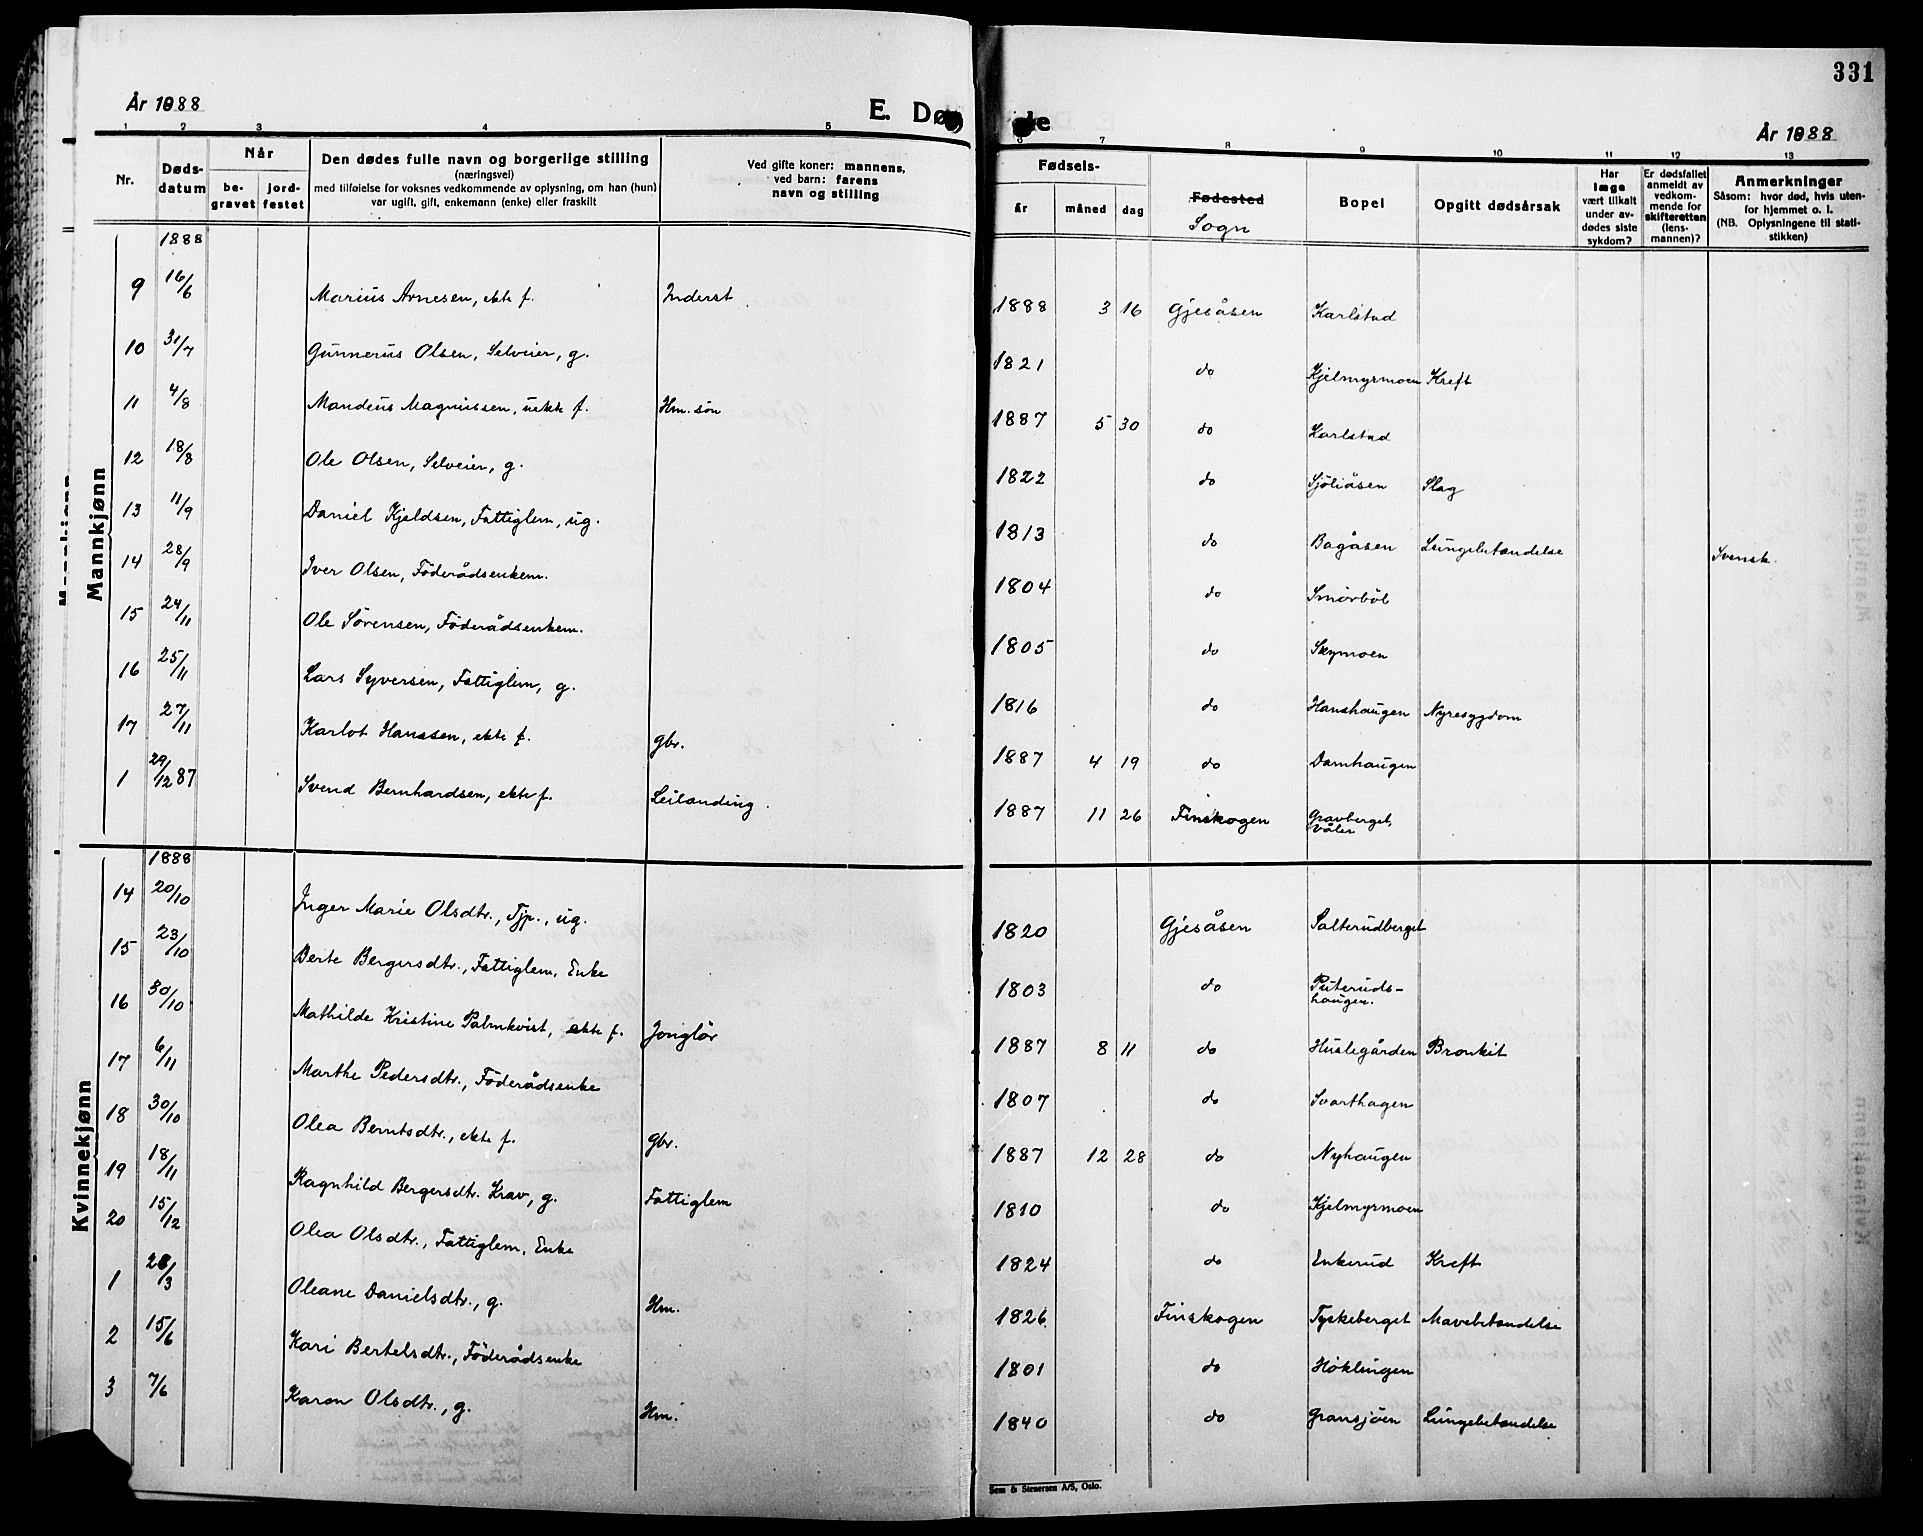 331
År 1888
E. Døde
År 1888
1 2 3 4 5 6 7 8 9 10 11 12 13
Nr. Døds-datum Når be-gravet jord-festet Den dødes fulle navn og borgerlige stilling (næringsvei) med tilføielse for voksnes vedkommende av oplysning, om han (hun) var ugift, gift, enkemann (enke) eller fraskilt Ved gifte koner: mannens, ved barn: farens navn og stilling Fødsels- år måned dag Fødested Sogn Bopel Opgitt dødsårsak Har læge vært tilkalt under av-dødes siste sykdom? Er dødsfallet anmeldt av vedkom-mende for skifteretten (lens-mannen)? Anmerkninger Såsom: hvor død, hvis uten-for hjemmet o. l. (NB. Oplysningene til stati-stikken)
Mannkjønn
1888
9 16/6 Marius Arnesen, ekte f. Inderst. 1888 3 16 Gjesåsen Karlstad
10 31/7 Gunnerus Olsen, Selveier, g. 1821 do Kjelmyrmoen Kreft
11 4/8 Mandeus Magnussen, uekte f. Hm. søn 1887 5 30 do Karlstad
12 18/8 Ole Olsen, Selveier, g. 1822 do Sjöliåsen Slag
13 11/9 Daniel Kjeldsen, Fattiglem, ug. 1813 do Bagåsen Lungebetændelse Svensk.
14 28/9 Iver Olsen, Föderådsenkem. 1804 do Smörböl
15 24/11 Ole Sörensen, Föderådsenkem. 1805 do Skymoen
16 25/11 Lars Syversen, Fattiglem, g. 1816 do Hanshaugen Nyresygdom
17 27/11 Karlot Hanssen, ekte f. gbr. 1887 4 19 do Damhaugen
1 29/12 87 Svend Bernhardsen, ekte f. Leilending. 1887 11 26 Finskogen Gravberget, Våler
Kvinnekjønn
1888
14 20/10 Inger Marie Olsdtr., Tjp., ug. 1820 Gjesåsen Salterudberget
15 23/10 Berte Bergersdtr., Fattiglem, Enke 1803 do Puteruds-haugen.
16 30/10 Mathilde Kristine Palmkvist, ekte f. Jonglör 1887 8 11 do Huslegården Bronkit
17 6/11 Marthe Pedersdtr., Föderådsenke 1807 do Svarthagen
18 30/10 Olea Berntsdtr., ekte f. gbr. 1887 12 28 do Nyhaugen
19 18/11 Ragnhild Bergersdtr. Krav, g. Fattiglem 1810 do Kjelmyrmoen
20 15/12 Olea Olsdtr., Fattiglem, Enke 1824 do Enkerud Kreft
1 /3 Oleane Danielsdtr., g. Hm. 1826. Finskogen Tyskeberget Mavebetændelse
2 15/6 Kari Bertelsdtr., Föderådsenke 1801 do Höklingen
3 7/6 Karen Olsdtr., g. Hm. 1840 do Gransjöen Lungebetændelse
Sem & Stenersen A/S, Oslo.